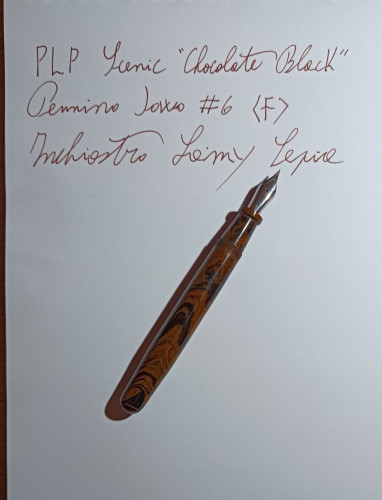 PLP Scenic "Chocolate Black"
Pennino Jowo #6 <F>
Inchiostro Lamy Sepia